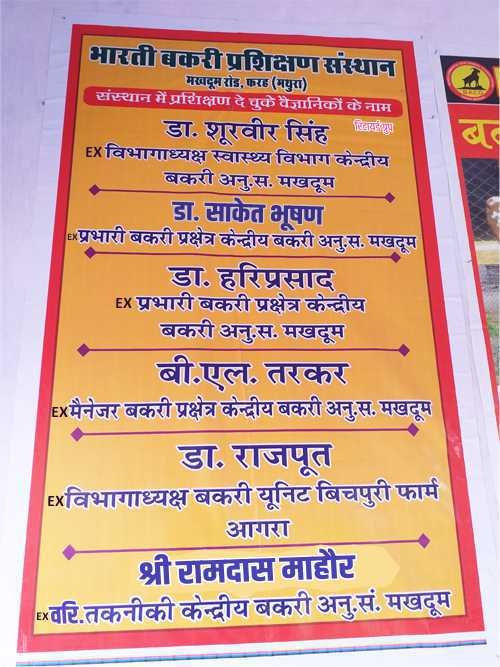 भारती बकरी प्रशिक्षण संस्थान
मखदूम रोड, फरह (मथुरा)
संस्थान में प्रशिक्षण दे चुके वैज्ञानिकों के नाम
रिटायर्ड ग्रुप
डा. शूरवीर सिंह
EX विभागाध्यक्ष स्वास्थ्य विभाग केन्द्रीय
बकरी अनु.स. मखदूम
डा. साकेत भूषण
EX प्रभारी बकरी प्रक्षेत्र केन्द्रीय बकरी अनु.स. मखदूम
डा. हरिप्रसाद
EX प्रभारी बकरी प्रक्षेत्र केन्द्रीय
बकरी अनु.स. मखदूम
बी.एल. तरकर
EX मैनेजर बकरी प्रक्षेत्र केन्द्रीय बकरी अनु.स. मखदूम
डा. राजपूत
EX विभागाध्यक्ष बकरी यूनिट बिचपुरी फार्म
आगरा
श्री रामदास माहौर
EX वरि.तकनीकी केन्द्रीय बकरी अनु.सं. मखदूम